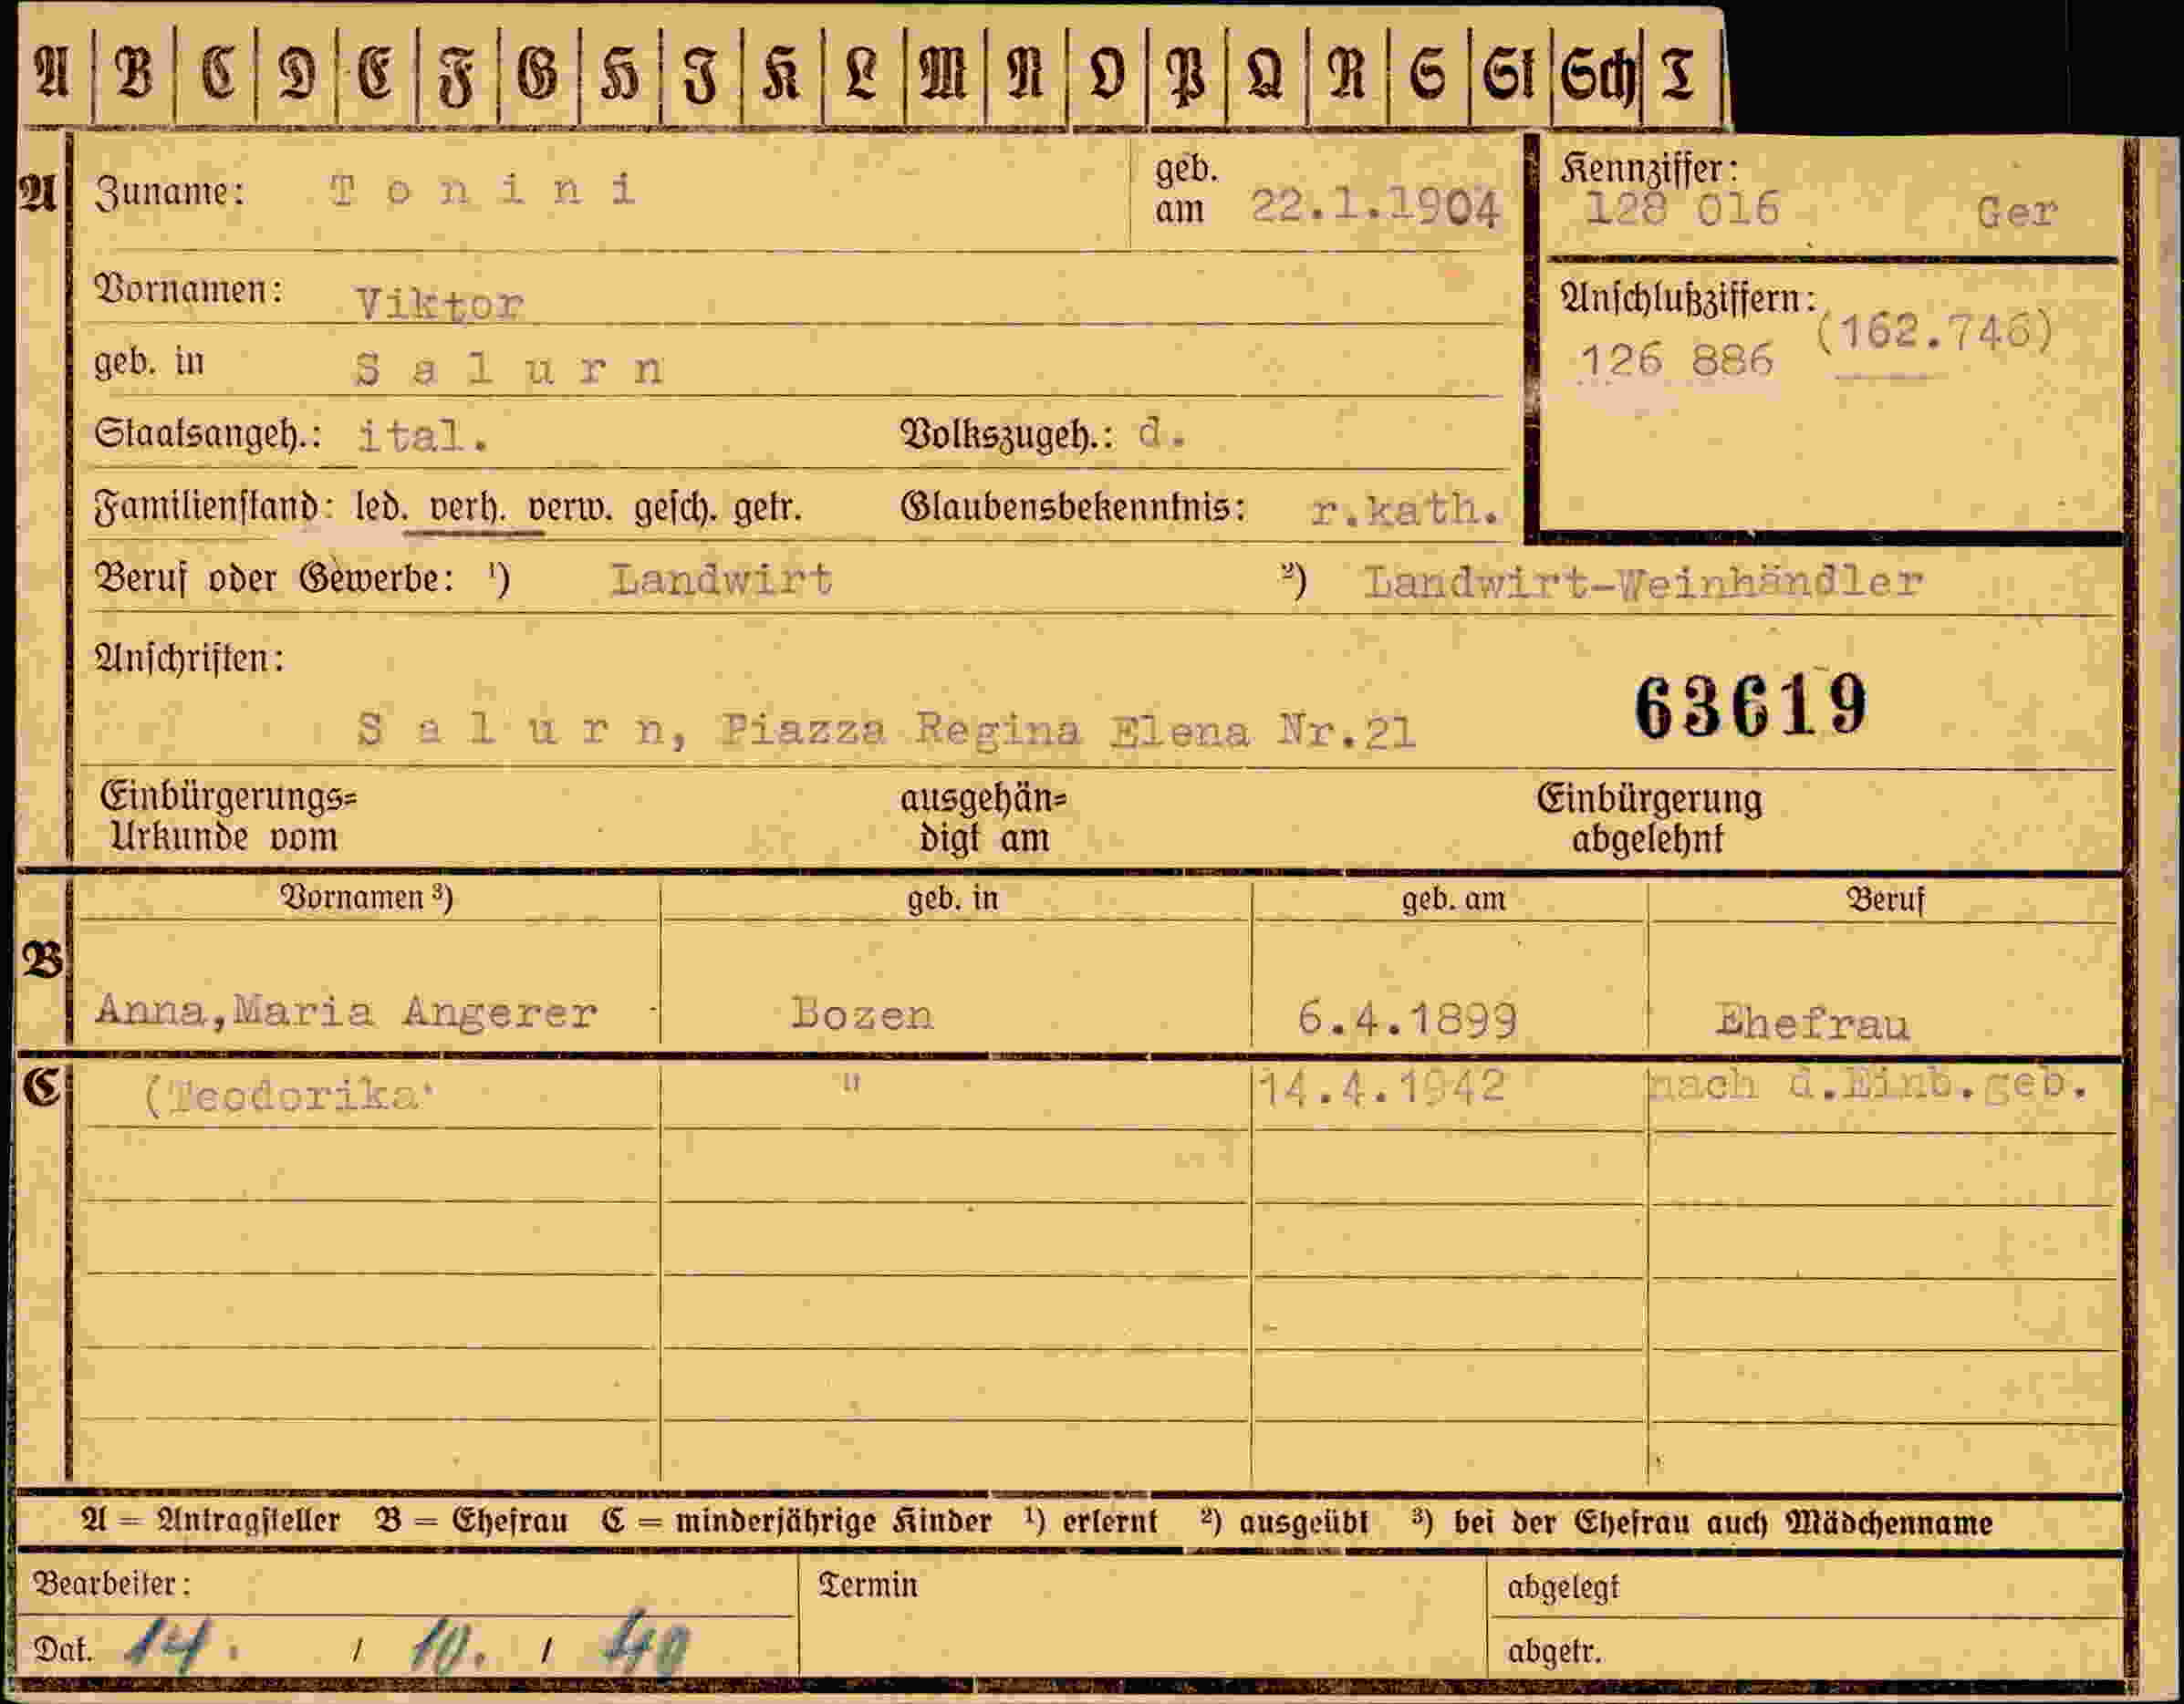 A B C D E F G H I K L M N O P Q R S St Sch T
A Zuname: Tonini geb. am 22.1.1904 Kennziffer: 128 016 Ger
Vornamen: Viktor Anschlußziffern: (162.746)
126 886
geb. in Salurn
Staatsangeh.: ital. Volkszugeh.: d.
Familienstand: led. verh. verw. gesch. getr. Glaubensbekenntnis: r.kath.
Beruf oder Gewerbe: ¹) Landwirt ²) Landwirt-Weinhändler
Anschriften:
63619
Salurn, Piazza Regina Elena Nr.21
Einbürgerungs= ausgehän= Einbürgerung
Urkunde vom digt am abgelehnt
Vornamen ³) geb. in geb. am Beruf
B
Anna,Maria Angerer Bozen 6.4.1899 Ehefrau
C (Teodorika " 14.4.1942 nach d.Einb.geb.
A = Antragsteller B = Ehefrau C = minderjährige Kinder ¹) erlernt ²) ausgeübt ³) bei der Ehefrau auch Mädchenname
Bearbeiter: Termin abgelegt
Dat. 14. / 10. / 40 abgetr.